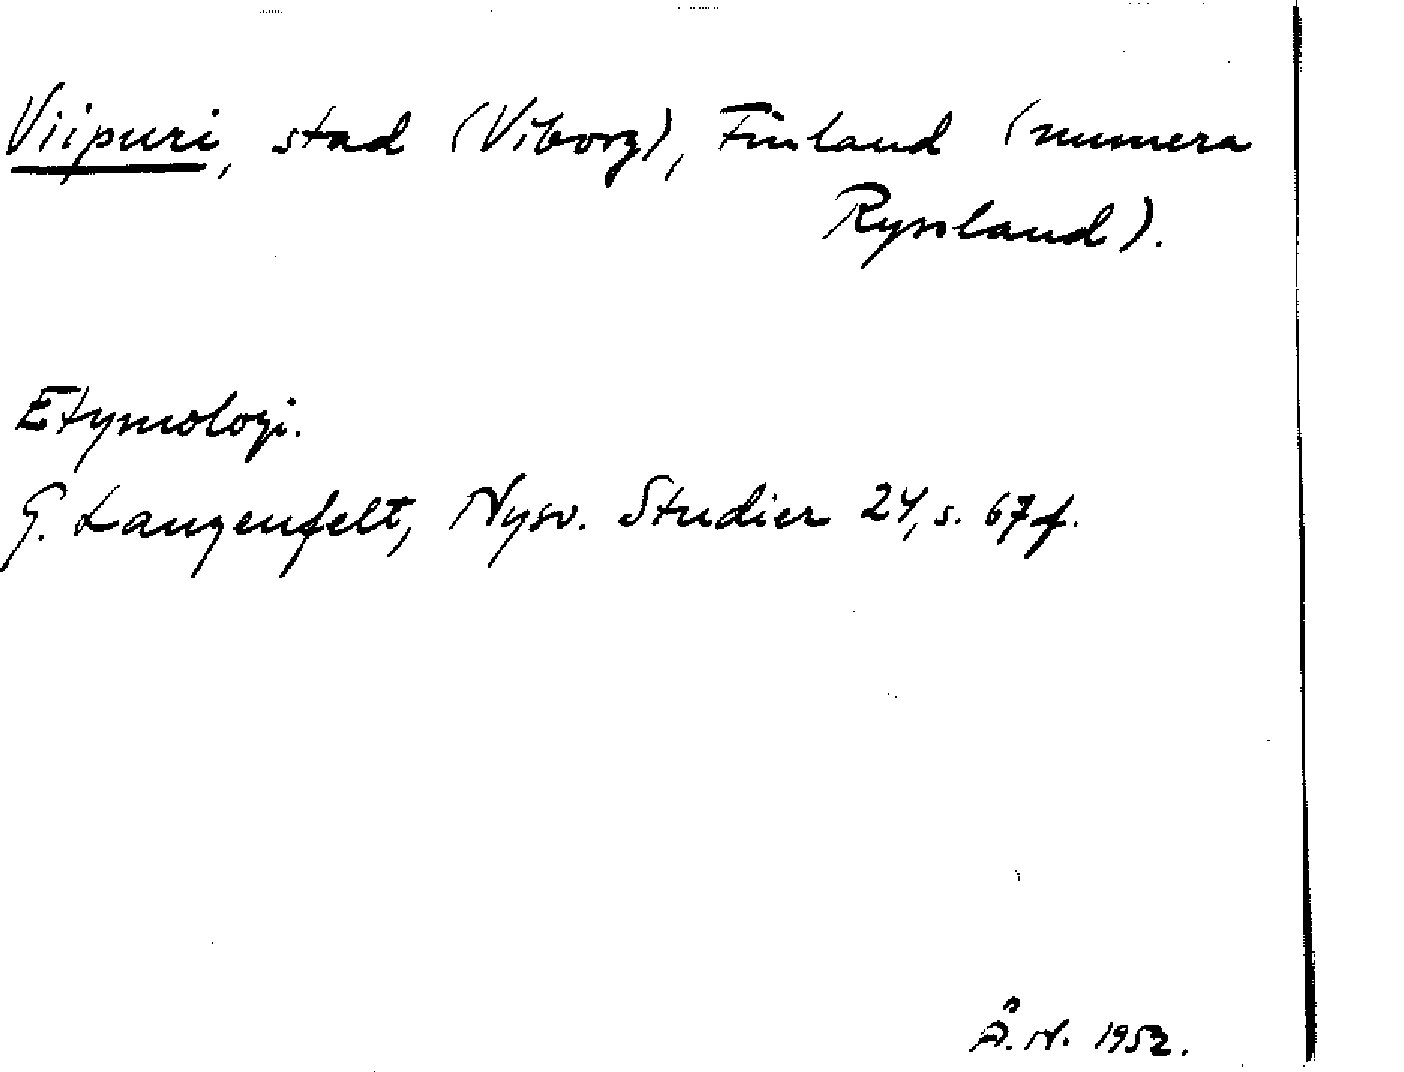 Viipuri, stad (Viborg), Finland (numera
Ryssland).
Etymologi.
G. Langenfelt, Nysv. Studier 24, s. 67 f.
Å. N. 1952.